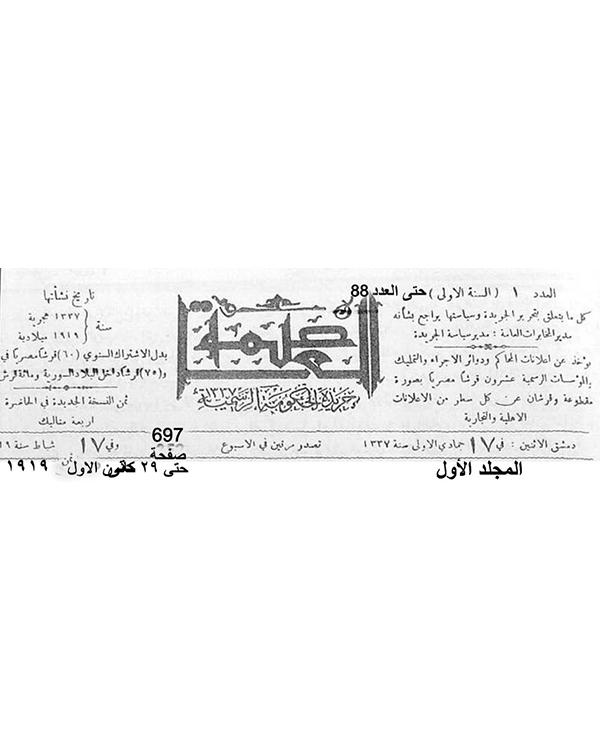 العدد ١ (السنة الاولى) حتى العدد 88
كل ما يتعلق بتحرير الجريدة وسياستها يراجع بشأنه
مدير المخابرات العامة : مدير سياسة الجريدة
يؤخذ عن اعلانات المحاكم ودوائر الاجراء والتمليك
والمؤسسات الرسمية عشرون قرشا مصريا بصورة
مقطوعة وقرشان عن كل سطر من الاعلانات
الاهلية والتجارية
العاصمة
١٣٣٧
جريدة الحكومة الرسمية
تاريخ نشأتها
سنة { ١٣٣٧ هجرية
١٩١٩ ميلادية
بدل الاشتراك السنوي (٦٠) قرشا مصريا في
و(٧٥) قرشا داخل البلاد السورية ومائة قرش
ثمن النسخة الجديدة في الحاضرة
اربعة متاليك
دمشق الاثنين : في ١٧ جمادي الاولى سنة ١٣٣٧
تصدر مرتين في الاسبوع
وفي ١٧ شباط سنة ١٩
697
صفحة
المجلد الأول
حتى ٢٩ كانون الاول ١٩١٩